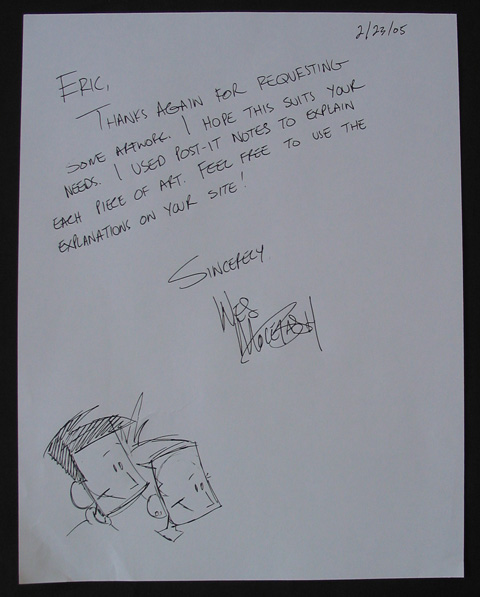 2/23/05
ERIC,
THANKS AGAIN FOR REQUESTING
SOME ARTWORK. I HOPE THIS SUITS YOUR
NEEDS. I USED POST-IT NOTES TO EXPLAIN
EACH PIECE OF ART. FEEL FREE TO USE THE
EXPLANATIONS ON YOUR SITE!
SINCERELY
WES